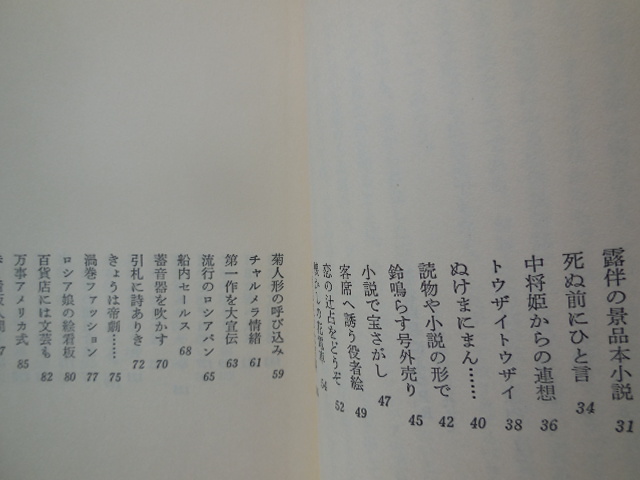 露伴の景品本小説 31
死ぬ前にひと言 34
中将姫からの連想 36
トウザイトウザイ 38
ぬけまにまん…… 40
読物や小説の形で 42
鈴鳴らす号外売り 45
小説で宝さがし 47
客席へ誘う役者絵 49
恋の辻占をどうぞ 52
菊人形の呼び込み 59
チャルメラ情緒 61
第一作を大宣伝 63
流行のロシアパン 65
船内セールス 68
蓄音器を吹かす 70
引札に詩ありき 72
きょうは帝劇…… 75
渦巻ファッション 77
ロシア娘の絵看板 80
百貨店には文芸も 82
万事アメリカ式 85